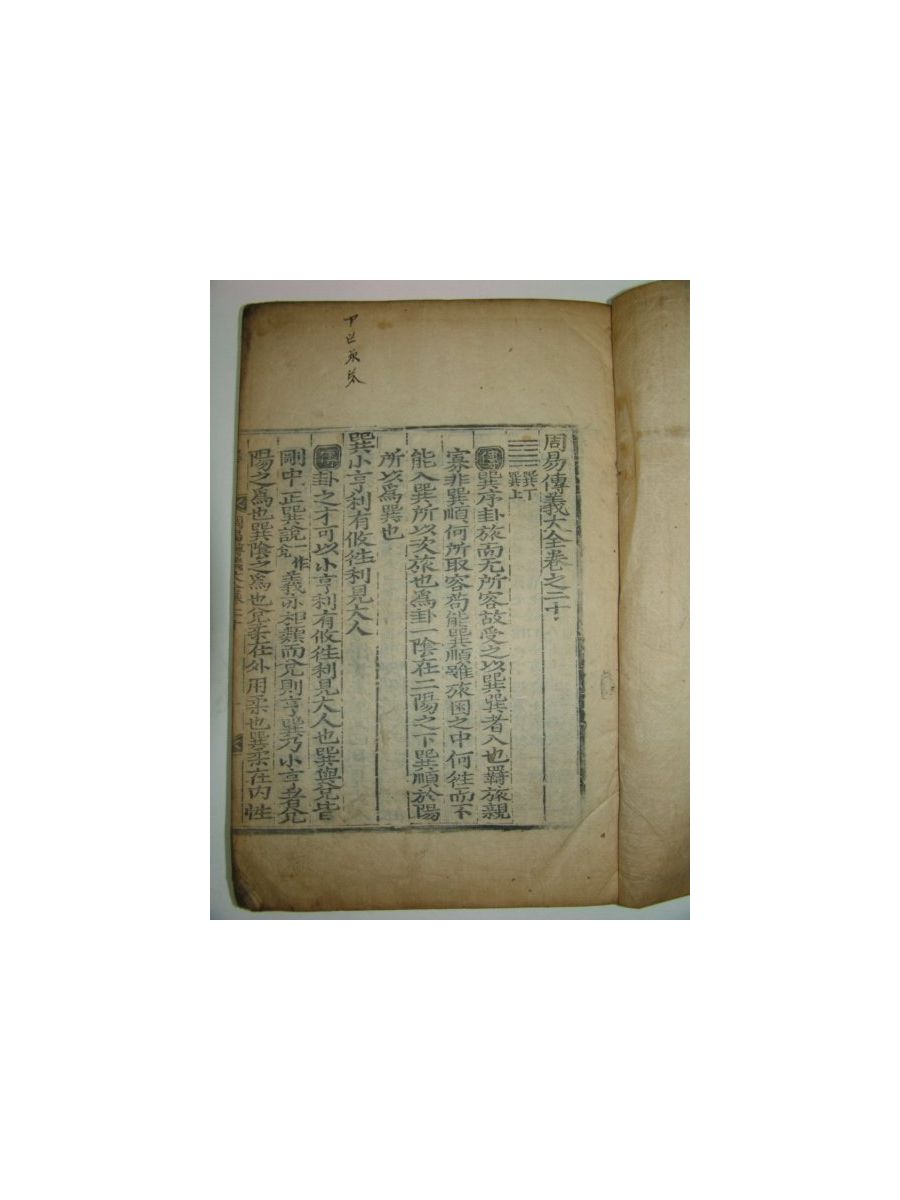 周易傳義大全卷之二十
巽下
巽上
傳巽序卦旅而无所容故受之以巽巽者入也羇旅親
寡非巽順何所取容苟能巽順雖旅困之中何徃而不
能入巽所以次旅也爲卦一陰在二陽之下巽順於陽
所以爲巽也
巽小亨利有攸徃利見大人
傳卦之才可以小亨利有攸徃利見大人也巽與兌皆
剛中正巽說一作兌義亦相類而兌則亨巽乃小亨者兌
陽之爲也巽陰之爲也兌柔在外用柔也巽柔在內性